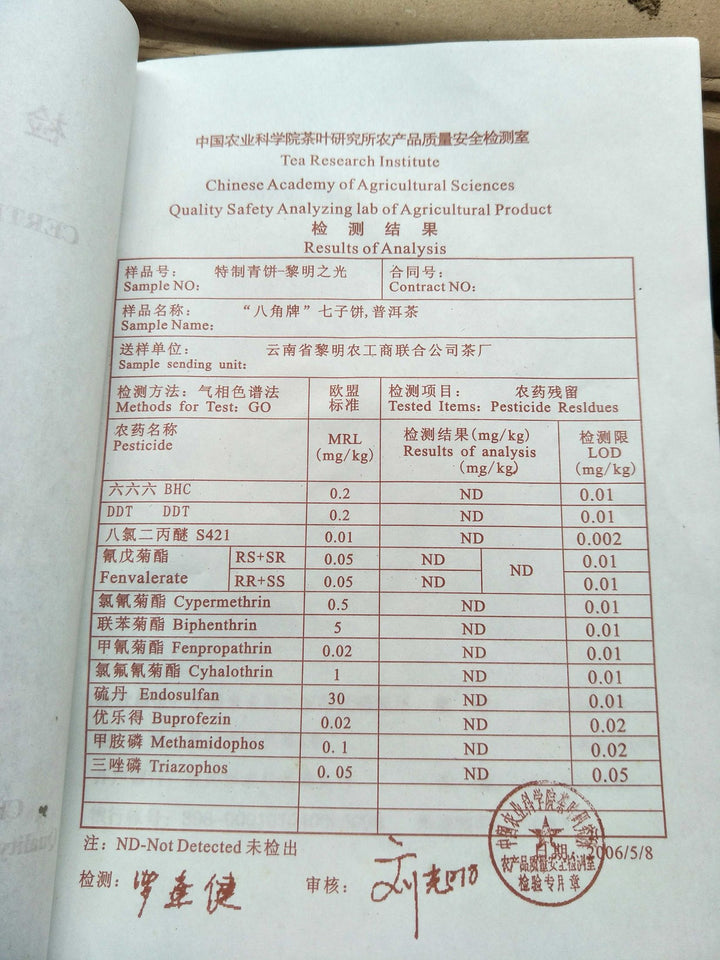 中国农业科学院茶叶研究所农产品质量安全检测室
Tea Research Institute
Chinese Academy of Agricultural Sciences
Quality Safety Analyzing lab of Agricultural Product
检 测 结 果
Results of Analysis
样品号： 特制青饼-黎明之光 合同号：
Sample NO: Contract NO:
样品名称： “八角牌”七子饼,普洱茶
Sample Name:
送样单位： 云南省黎明农工商联合公司茶厂
Sample sending unit:
检测方法：气相色谱法 欧盟 检测项目： 农药残留
Methods for Test: GO 标准 Tested Items: Pesticide Resldues
农药名称 MRL 检测结果(mg/kg) 检测限
Pesticide (mg/kg) Results of analysis LOD
(mg/kg) (mg/kg)
六六六 BHC 0.2 ND 0.01
DDT DDT 0.2 ND 0.01
八氯二丙醚 S421 0.01 ND 0.002
氰戊菊酯 RS+SR 0.05 ND ND 0.01
Fenvalerate RR+SS 0.05 ND 0.01
氯氰菊酯 Cypermethrin 0.5 ND 0.01
联苯菊酯 Biphenthrin 5 ND 0.01
甲氰菊酯 Fenpropathrin 0.02 ND 0.01
氯氟氰菊酯 Cyhalothrin 1 ND 0.01
硫丹 Endosulfan 30 ND 0.01
优乐得 Buprofezin 0.02 ND 0.02
甲胺磷 Methamidophos 0.1 ND 0.02
三唑磷 Triazophos 0.05 ND 0.05
注：ND-Not Detected 未检出 日期：2006/5/8
中国农业科学院茶叶研究所
农产品质量安全检测室
检验专用章
检测： 审核：